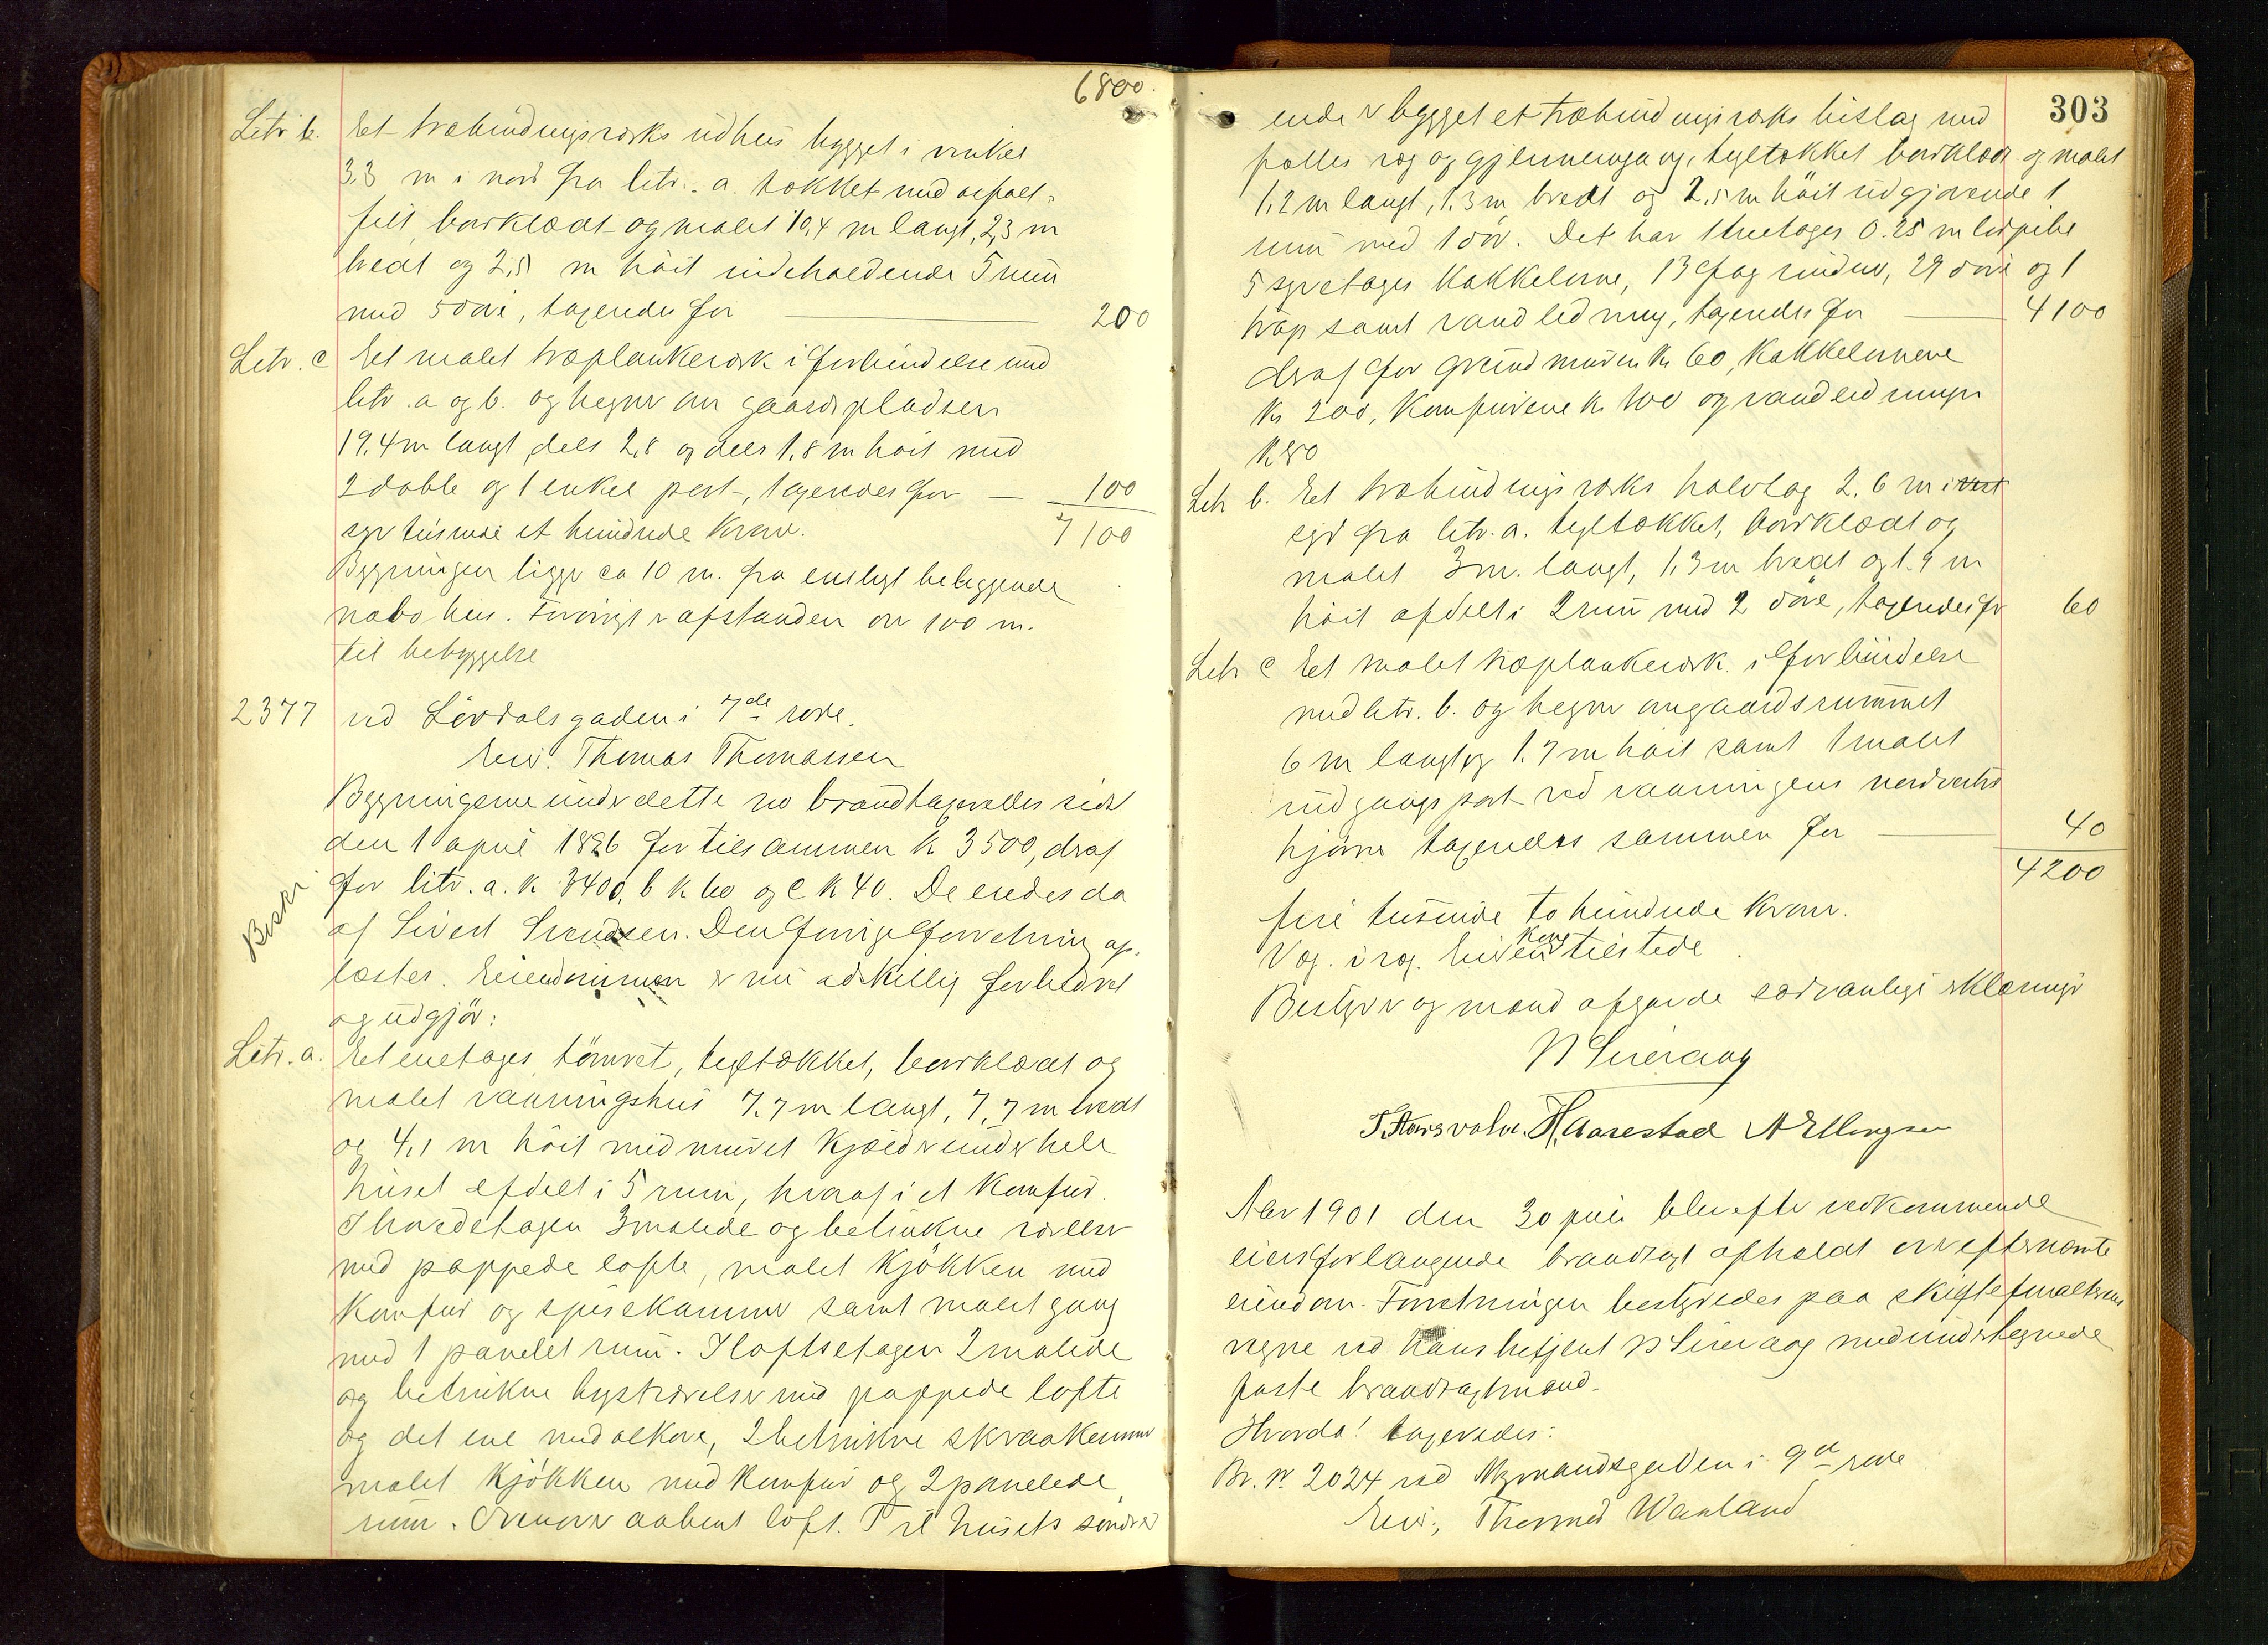 6800.
Litr. b. Et træbindingsværks udhus bygget i vinkel
3.3 m i nord fra litr. a. tækket med asfalt-
filt, bordklædt og malet 10,4 m langt, 2,3 m
bredt og 2,5 m höit indeholdende 5 rum
med 5 döre, taxeredes for 200
Litr. c Et malet træplankeværk i forbindelse med
litr. a og b. og hegner om gaardspladsen
19.4 m langt dels 2,8 og dels 1,8 m höit med
2 doble og 1 enkel port, taxeredes for 100
syv tusinde et hundrede kroner. 7100
Bygningen ligger ca 10 m. fra ensligt beliggende
nabohus. Forövrigt er afstanden over 100 m.
til bebyggelse
2377 ved Lövdalsgaden i 7de rode.
Eier: Thomas Thomassen
Bygningerne under dette no brandtaxeredes sidst
den 1 april 1896 for tilsammen kr 3500, deraf
for litr. a. kr. 3400, b kr 60 og c kr 40. De eiedes da
Beskr.
af Sivert Svendsen. Den forrige forretning op-
læstes. Eiendommen er nu adskillig forbedret
og udgjör:
Litr. a. Et enetages, tömret, tegltækket, bordklædt og
malet vaaningshus 7.7 m langt, 7,7 m bredt
og 4,1 m höit med muret kjælder under hele
huset afdelt i 5 rum, hvoraf i et komfur.
I hovedetagen 3 malede og betrukne værelser
med pappede lofte, malet kjökken med
komfur og spisekammer samt malet gang
med 1 panelet rum. I loftsetagen 2 malede
og betrukne kvistværelser med pappede lofte
og det ene med alkove, 2 betrukne skraakammer
malet kjökken med komfur og 2 panelede
rum. Ovenover aabent loft. Ved husets söndre
303
ende er bygget et træbindingsværks bislag med
fælles væg og gjennemgang, tegltækket bordklædt og malet
1,2 m langt, 1.3 m bredt og 2,5 m höit udgjörende 1
rum med 1 dör. Det har 1 treetages 0.25 m lös pibe
5 kakkelovne, 13 fag vinduer, 29 döre og 1
trap samt vandledning, taxeredes for 4100
deraf for grundmuren kr 60, kakkelovnene
kr 200, komfurene kr 100 og vandledningen
kr 50
Litr b. Et træbindingsværks halvtag 2.6 m i vest
syd fra litr. a. tegltækket, bordklædt og
malet 3 m. langt, 1,3 m bredt og 1.9 m
höit afdelt i 2 rum med 2 döre, taxeredes for 60
Litr c Et malet træplankeværk i forbindelse
med litr. b. og hegner om gaardsrummet
6 m langt og 1.7 m höit samt 1 malet
indgangsport ved vaaningens nordvestre
hjörne taxeredes sammen for 40
4200
fire tusinde to hundrede kroner.
Vog. i vog. Eierens kone tilstede.
Bestyrer og mænd afgavde sædvanlige erklæringer
N Sieraag
T. Storsvolve. H. Aarestad A Ellingsen
Aar 1901 den 30 juli blev efter vedkommende
eiers forlangende brandtaxt afholdt over efternævnte
eiendom. Forretningen bestyredes paa skifteforvalterens
vegne ved hans betjent N Sieraag med undertegnede
faste brandtaxtmænd.
Hvorda! taxeredes:
Br. Nr. 2024 ved Nymandsgaden i 9de rode
Eier: Thormod Wauland